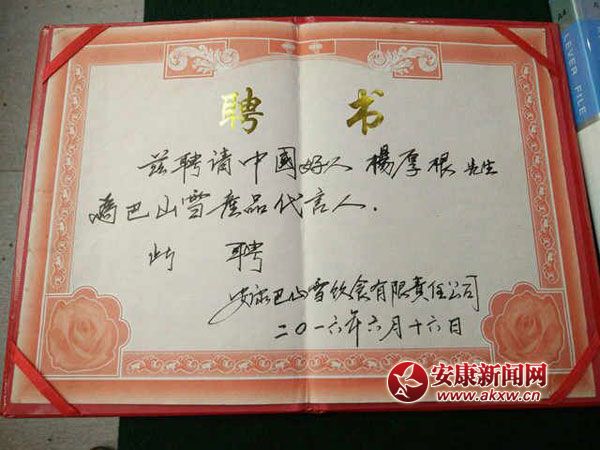 聘 书
兹聘请中國好人 楊厚根 先生
為巴山雪產品代言人.
此 聘
安康巴山雪饮食有限责任公司
二〇一六年六月十六日
LEVER FILE
安康新闻网
www.akxw.cn